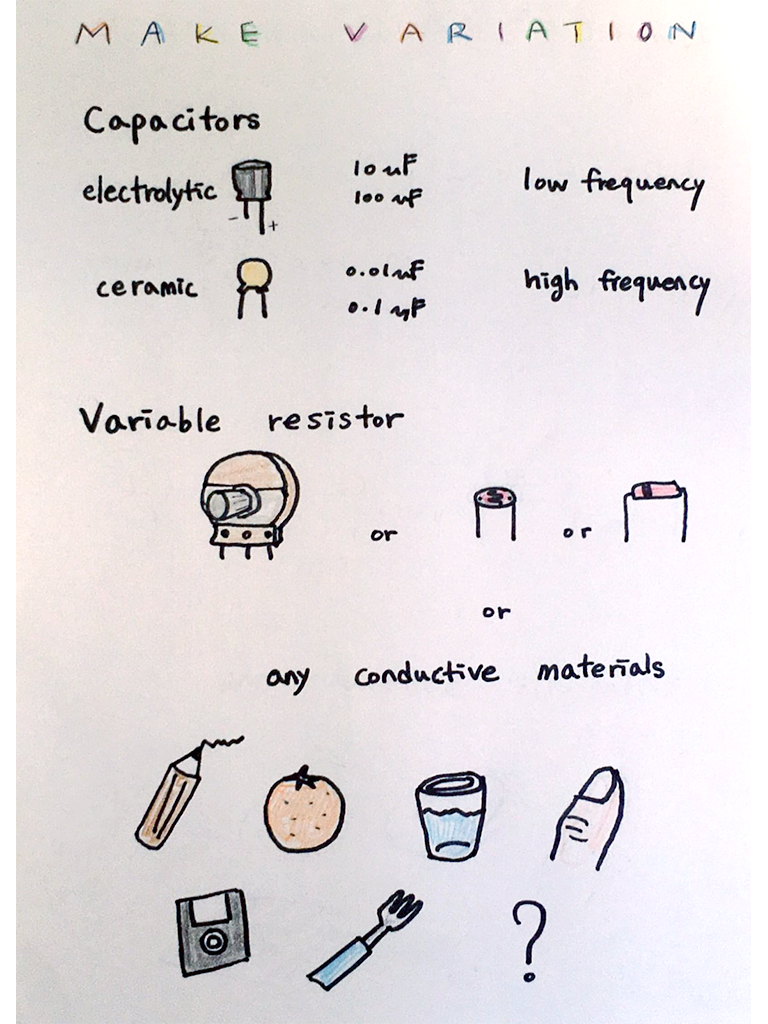 MAKE VARIATION
Capacitors
electrolytic 10 uF low frequency
100 uF
- +
ceramic 0.01uF high frequency
0.1 uF
Variable resistor
or or
or
any conductive materials
?